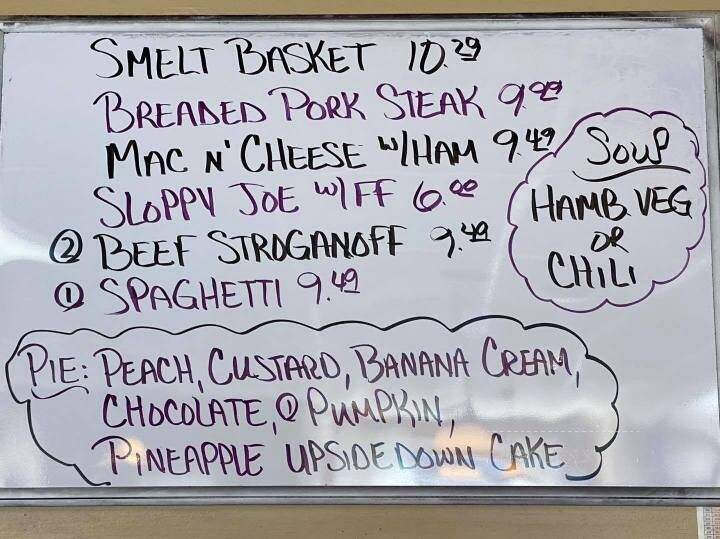 SMELT BASKET 10.29
BREADED PORK STEAK 9.99
MAC N' CHEESE W/HAM 9.49
SLOPPY JOE W/FF 6.00
② BEEF STROGANOFF 9.49
① SPAGHETTI 9.49
SOUP
HAMB. VEG
OR
CHILI
PIE: PEACH, CUSTARD, BANANA CREAM,
CHOCOLATE, ① PUMPKIN,
PINEAPPLE UPSIDE DOWN CAKE